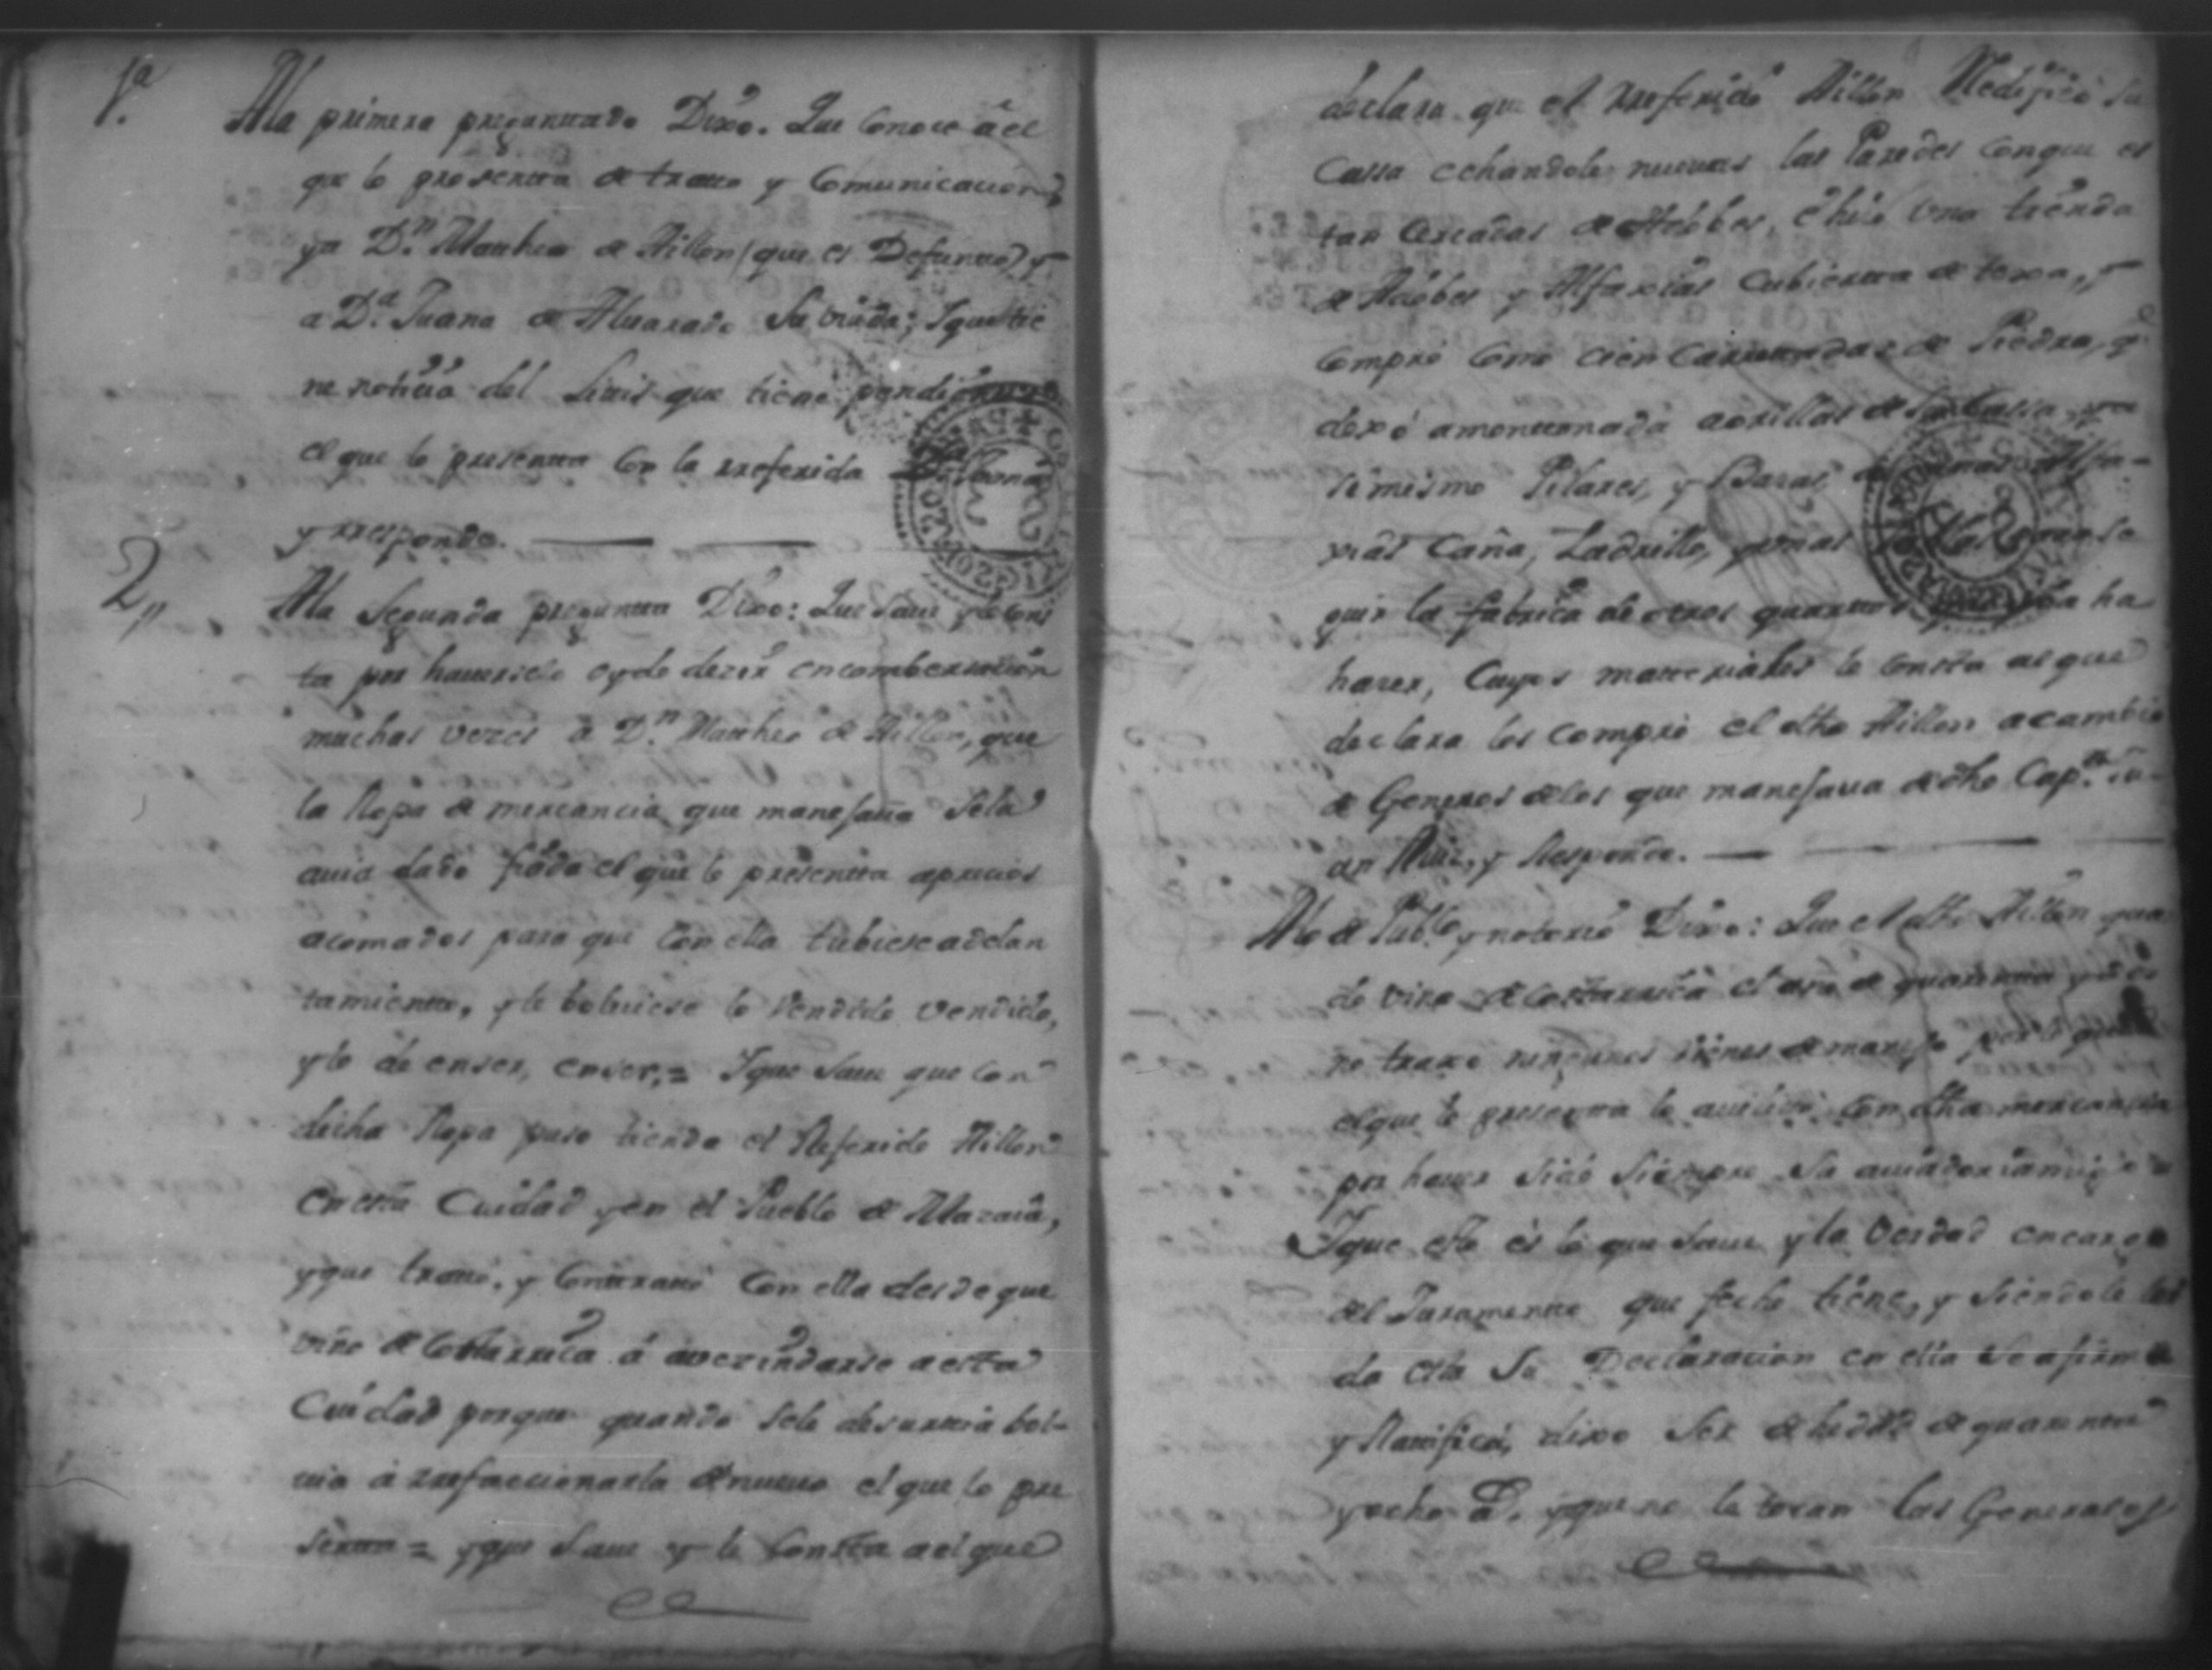 1ª
A la primera preguntado Dixo. Que Conose à el
que lo presentta de tratto y Comunicacion,
ya Dn. Matheo de Aillon (que es Defuntto) y
a Dª. Juana de Alvarado Su viuda; Y que tie
ne noticia del Litis que tiene pendientte
el que lo presentta Con la rreferida
y rresponde.
2,,
A la Segunda pregunta Dixo: Que Save y le Cons
ta por haverselo oydo dezir en combersacion
muchas vezes à Dn. Matheo de Aillon, que
la Ropa de mercancia que manejava Se la
avia dado fiada el que lo presentta a precios
acomodados para que Con ella tubiese adelan
tamientto, y le bolviese lo vendido vendido,
y lo de enser, enser,= Y que Save que Con
dicha Ropa puso tienda el Referido Aillon
en esta Ciudad y en el Pueblo de Masaia,
y que tratto, y Conttratto Con ella desde que
vino de Costarrica à avezindarse a esta
Ciudad porque quando Se le desurttia bol-
via à rrefaccionarla de nuevo el que lo pre
sentta = y que Save y le Consta a el que
declara que el rreferido Aillon Redifico Su
Cassa echandole nuevas las Paredes Con que es
tan Cercadas de Adobes, è hizo una tienda
de Adobes y Alfaxias Cubiertta de texa, y
Compro Como cien Carrettadas de Piedra, qe
dexó amonttonada a orillas de Su Cassa,
simismo Pilares, y Baras Alfa-
xias Caña, Ladrillo,
guir la fabrica de otros quarttos ha
hazer, Cuyos matteriales le Consta al que
declara los Compró el dho Aillon a cambio
de Generos de los que manejava de dho Capn. Ju-
an Ruiz, y Responde.
A lo de Pubco. y notorio Dixo: Que el dho Aillon
do vino de Costarrica el año de quarentta y
no traxo ningunos vienes de
el que lo presentta lo con dha mercancia
por haver Sido Siempre Su aviador
Y que esto es lo que Save y la Verdad en cargo
del Juramentto que fecho tiene, y Siendole lei
da esta Su Declaracion en ella Se afirmó
y Rattificó, dixo Ser de hedad de quarentta
y ocho as. y que no le tocan las Generales